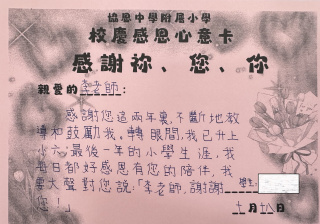 協恩中學附屬小學
校慶感恩心意卡
感謝祢、您、你
親愛的李老師：
感謝您這兩年裏，不斷地教
導和鼓勵我。轉眼間，我已升上
小六，最後一年的小學生涯，我
每日都好感恩有您的陪伴，我
要大聲對您說：「李老師，謝謝
您！」
學生：
十月十八日